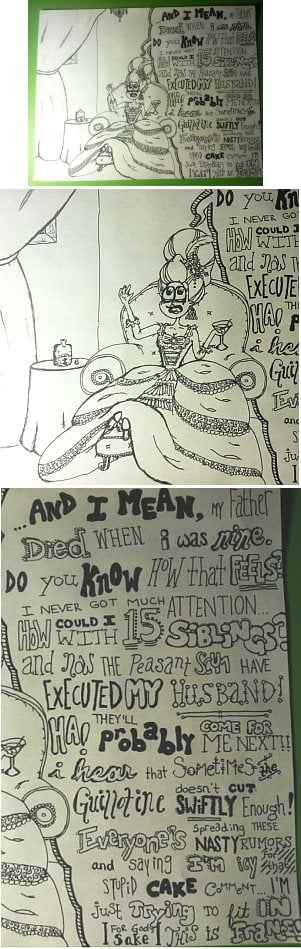 ...AND I MEAN, my Father
Died WHEN i was nine.
DO you KNOW HOW that FEELS?
I NEVER GOT MUCH ATTENTION...
HOW COULD I WITH 15 SiBLiNGS?
and now THE Peasant Scum HAVE
EXECUTED MY HUSBAND!
HA! THEY'LL probably COME FOR ME NEXT!!
i hear that SomeTiMes the
Guillotine doesn't CUT SWiFTLY Enough!
Everyone's spreading THESE NASTY RUMORS
and saying I'M icy For THAT
STUPID CAKE COMMENT... I'M
just Trying to fit IN
[FOR God's Sake] This is FRANCE!